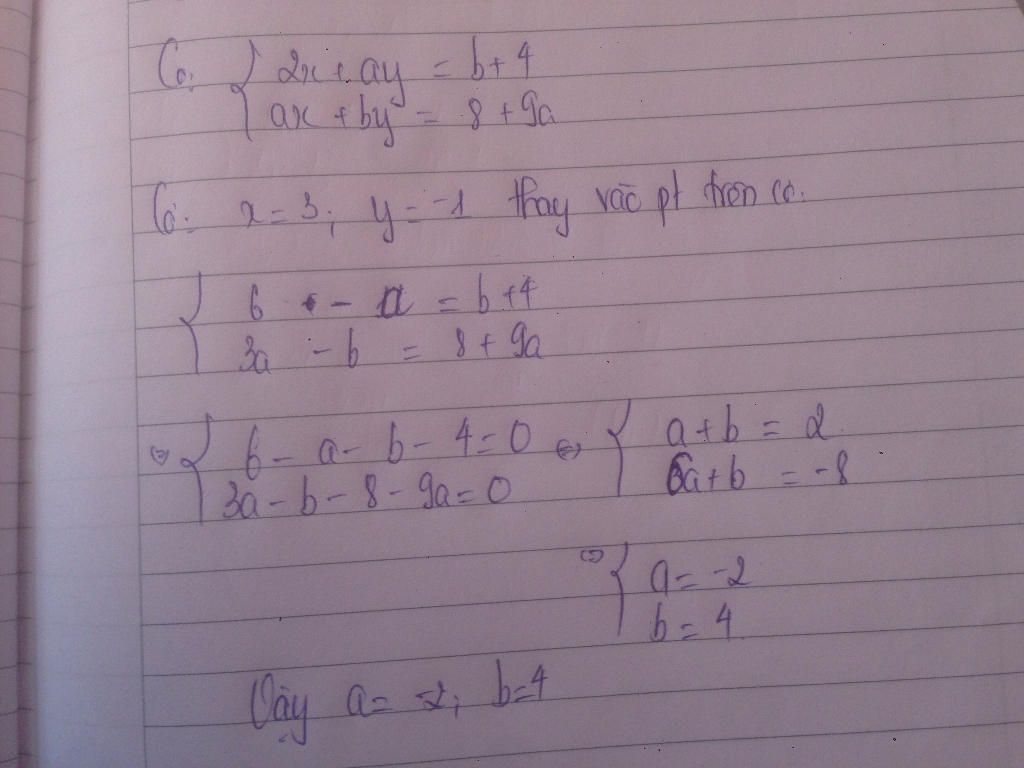 Có: { 2x + ay = b + 4
ax + by = 8 + 9a
Có: x = 3; y = -1 thay vào pt trên có:
{ 6 - a = b + 4
3a - b = 8 + 9a
⇔ { 6 - a - b - 4 = 0 ⇔ { a + b = 2
3a - b - 8 - 9a = 0 6a + b = -8
⇔ { a = -2
b = 4
Vậy a = -2; b = 4